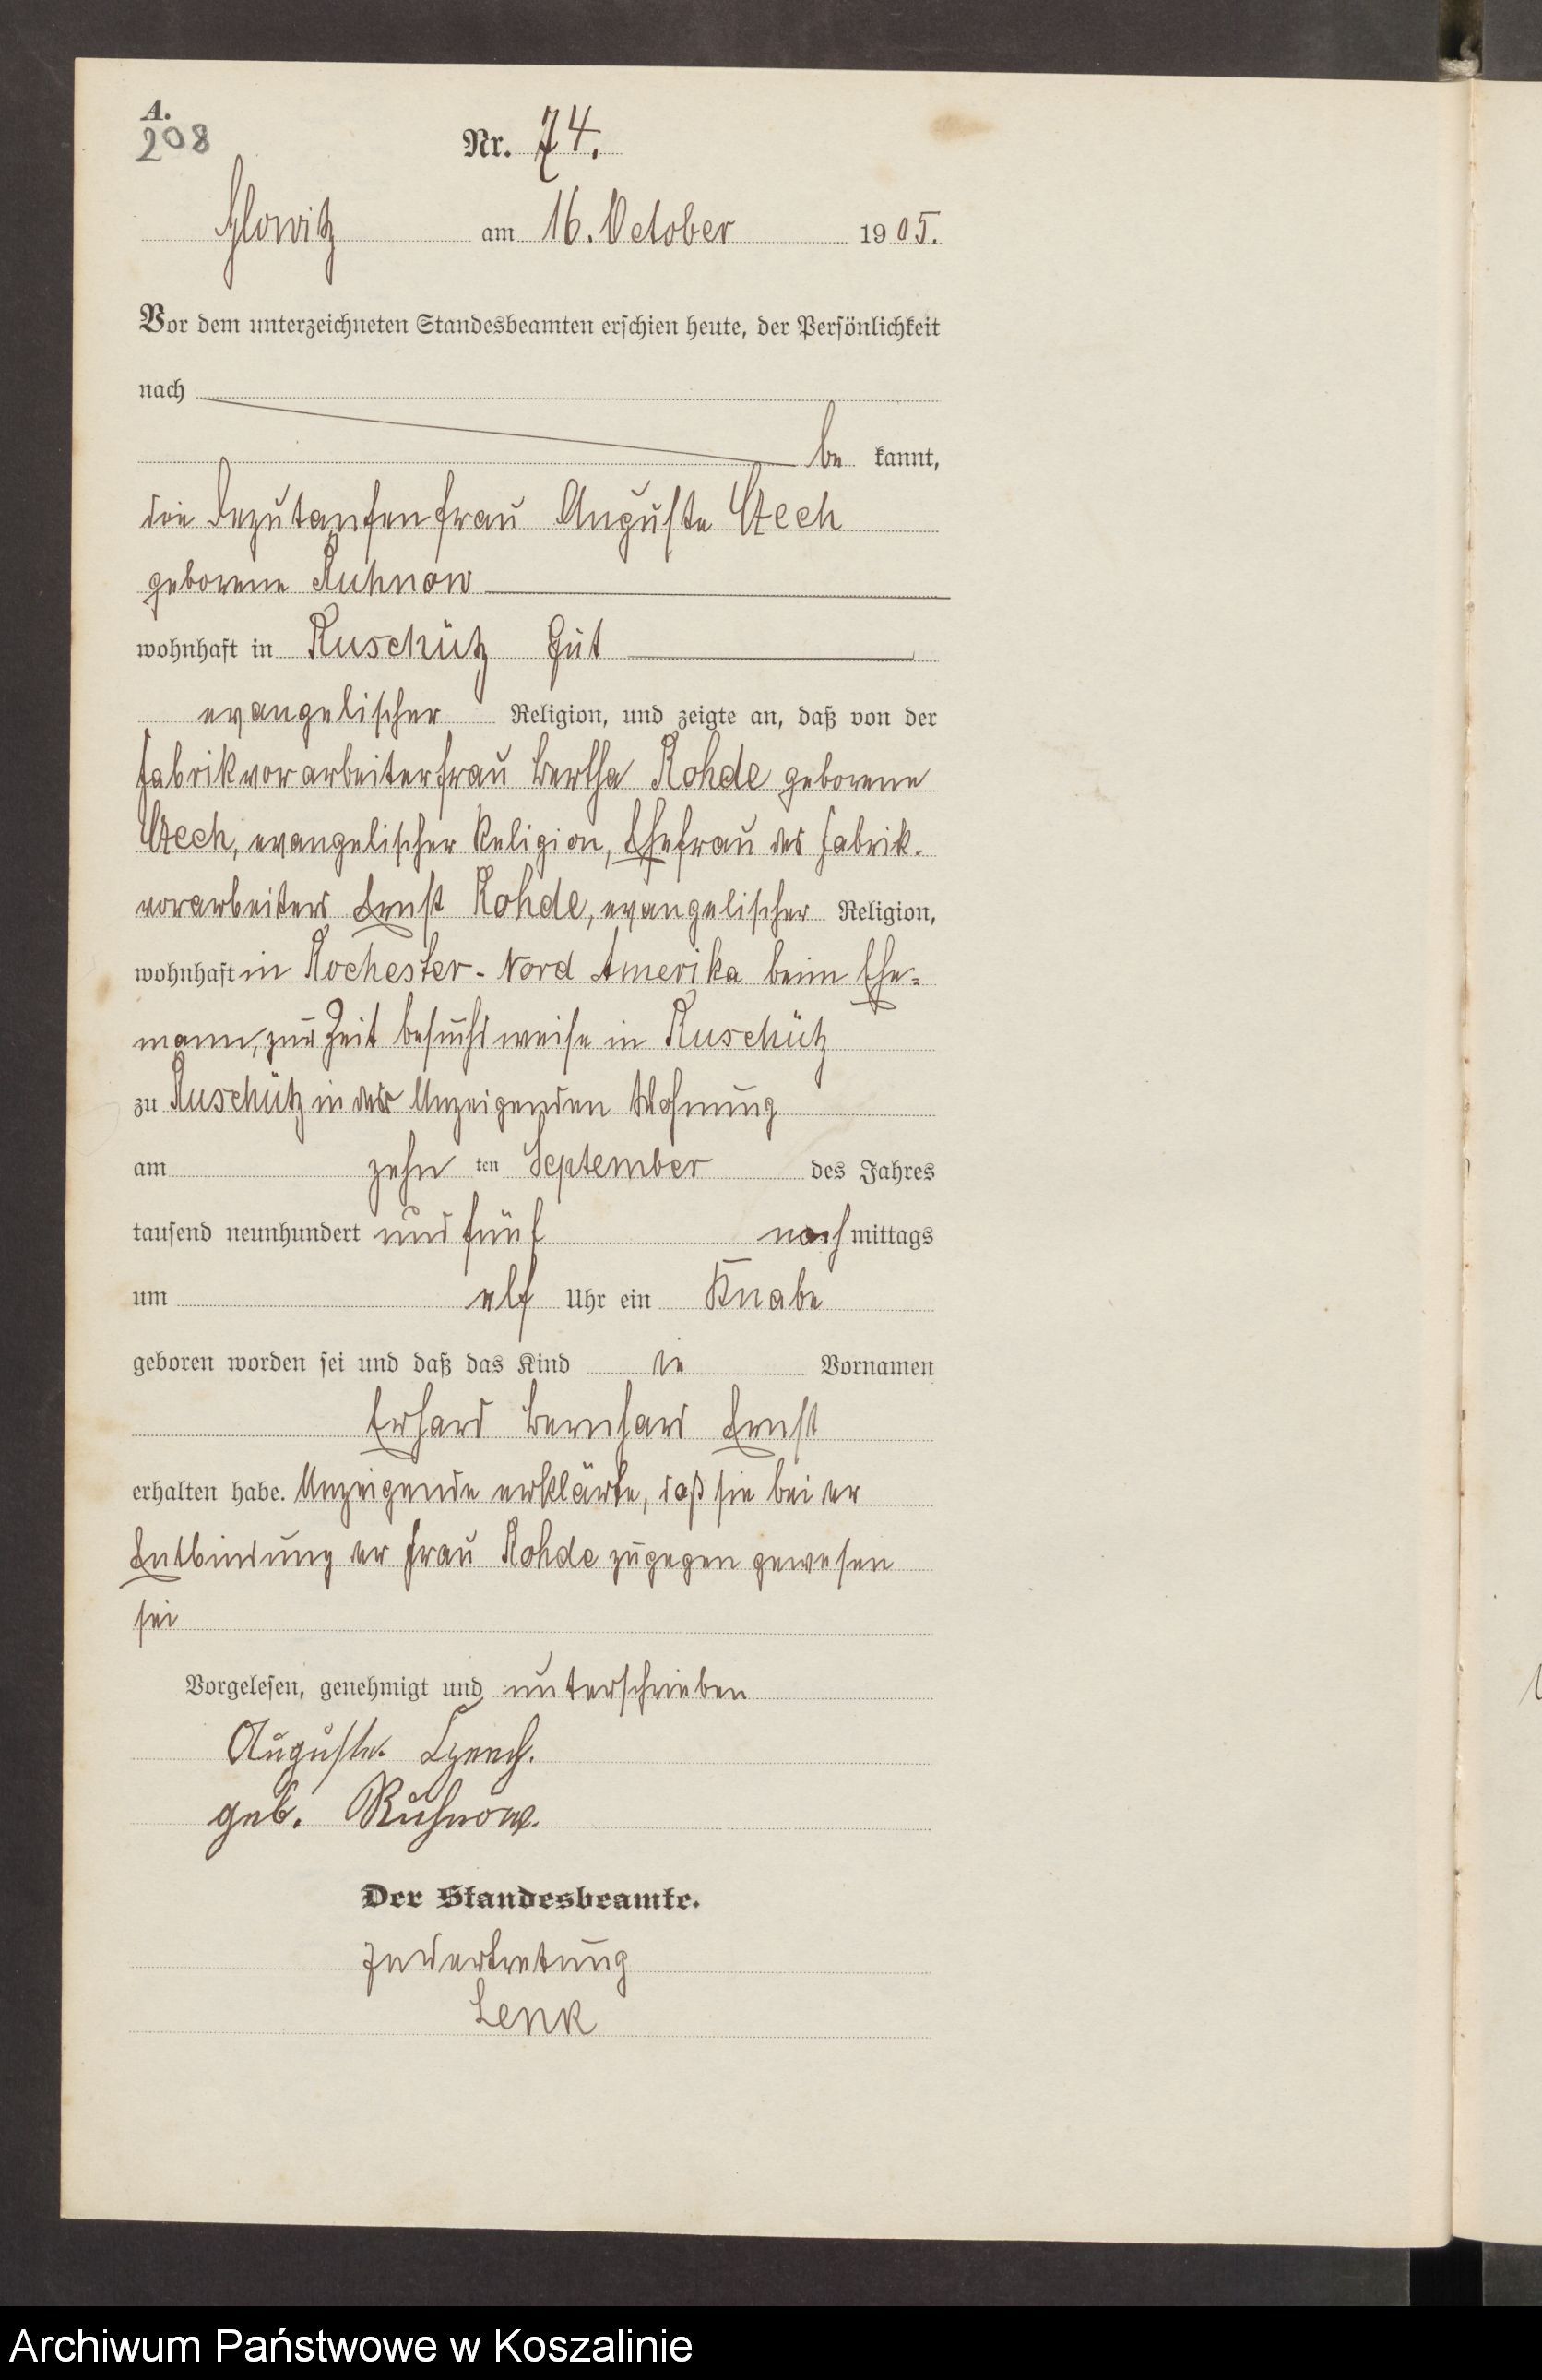 A.
208
Nr. 74.
Glowitz am 16. October 1905.
Vor dem unterzeichneten Standesbeamten erschien heute, der Persönlichkeit
nach
be kannt,
die Deputantenfrau Auguste Czech
geborene Ruhnow
wohnhaft in Ruschütz Gut
evangelischer Religion, und zeigte an, daß von der
Fabrikvorarbeiterfrau Bertha Rohde geborene
Czech, evangelischer Religion, Ehefrau des Fabrik-
vorarbeiters Ernst Rohde, evangelischer Religion,
wohnhaft in Rochester - Nord Amerika beim Ehe-
mann, zur Zeit besuchsweise in Ruschütz
zu Ruschütz in der Anzeigenden Wohnung
am zehn ten September des Jahres
tausend neunhundert und fünf nachmittags
um elf Uhr ein Knabe
geboren worden sei und daß das Kind die Vornamen
Erhard Bernhard Ernst
erhalten habe. Anzeigende erklärte, daß sie bei der
Entbindung der Frau Rohde zugegen gewesen
sei
Vorgelesen, genehmigt und unterschrieben
Auguste Czech.
geb. Ruhnow.
Der Standesbeamte.
In Vertretung
Lenk
Archiwum Państwowe w Koszalinie